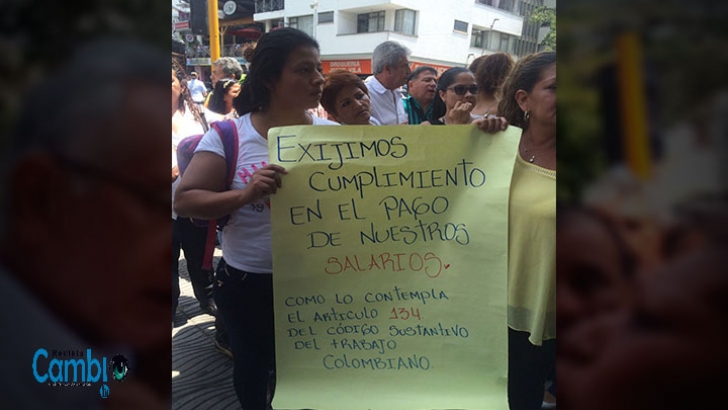 DROGUERIA
EXIJIMOS
CUMPLIMIENTO
EN EL PAGO
DE NUESTROS
SALARIOS.
COMO LO CONTEMPLA
EL ARTICULO 134
DEL CÓDIGO SUSTANTIVO
DEL TRABAJO
COLOMBIANO.
Cambio